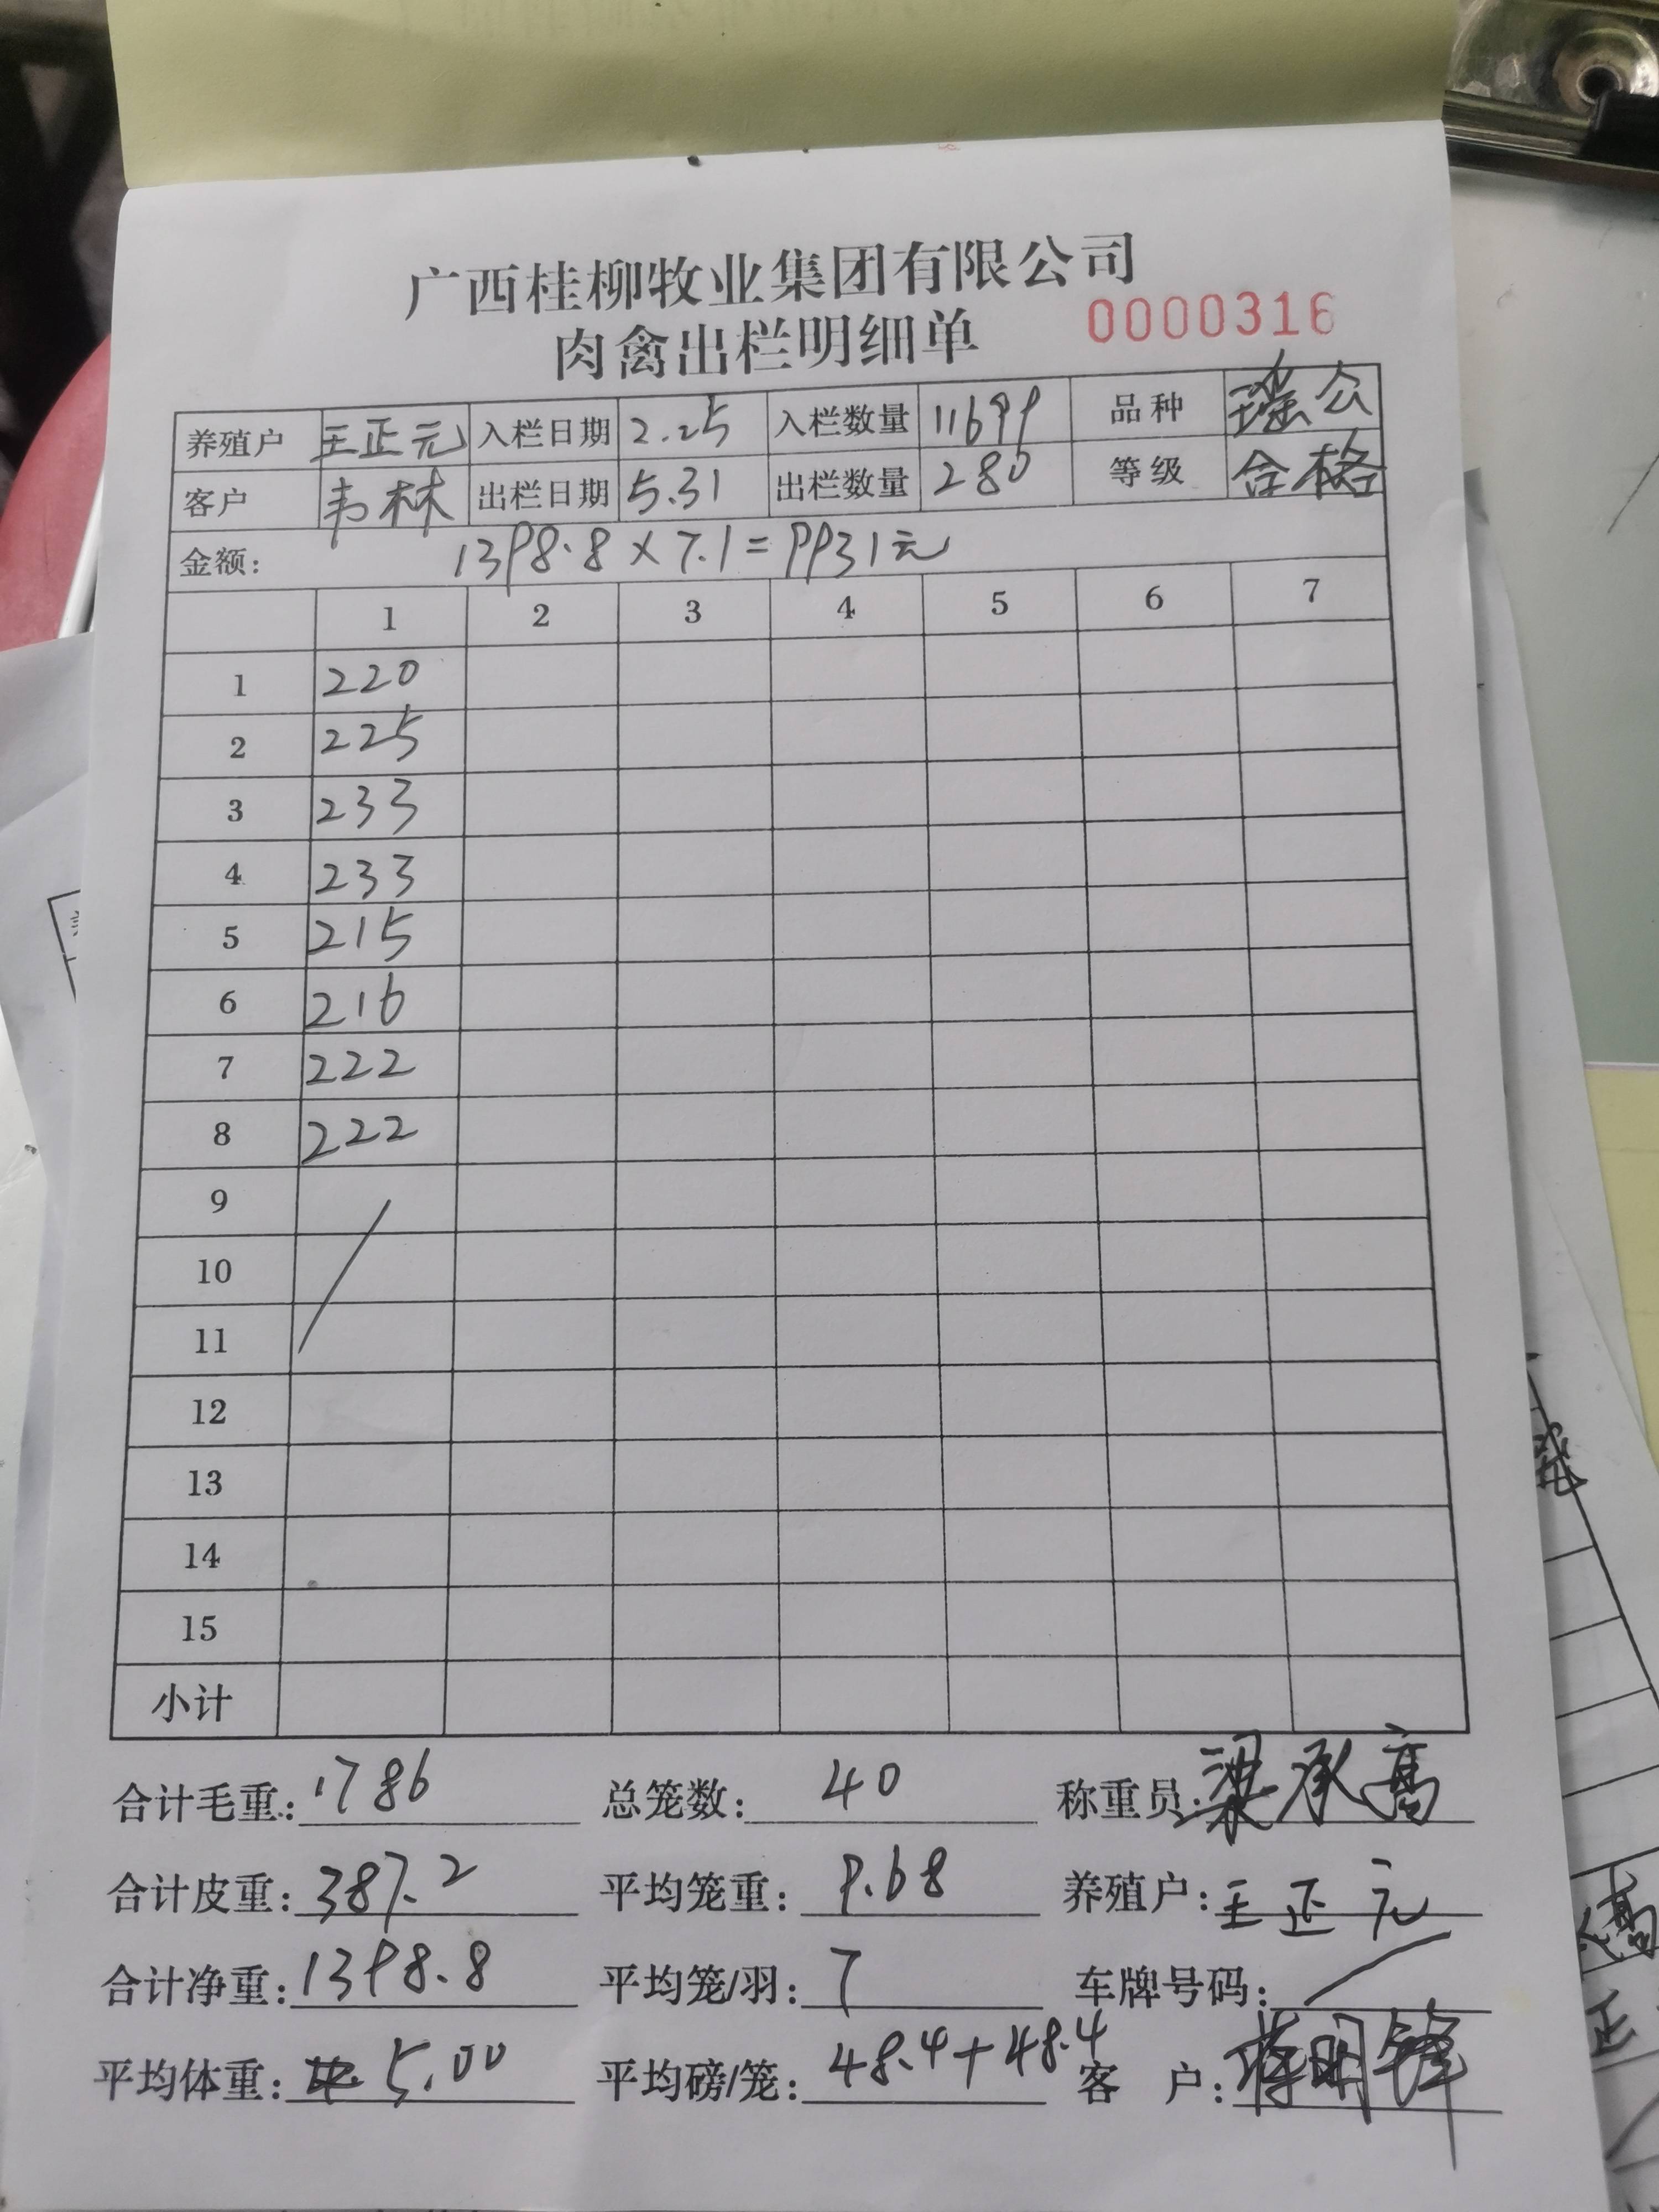 广西桂柳牧业集团有限公司
肉禽出栏明细单 0000316
养殖户 王正元 入栏日期 2.25 入栏数量 11699 品种 瑶公
客户 韦林 出栏日期 5.31 出栏数量 280 等级 合格
金额: 1398.8×7.1=9931元
1 2 3 4 5 6 7
1 220
2 225
3 233
4 233
5 215
6 216
7 222
8 222
9
10
11
12
13
14
15
小计
合计毛重: 1786 总笼数: 40 称重员: 梁承高
合计皮重: 387.2 平均笼重: 9.68 养殖户: 王正元
合计净重: 1398.8 平均笼/羽: 7 车牌号码: /
平均体重: 5.00 平均磅/笼: 48.4+48.4 客 户: 蒋明锋